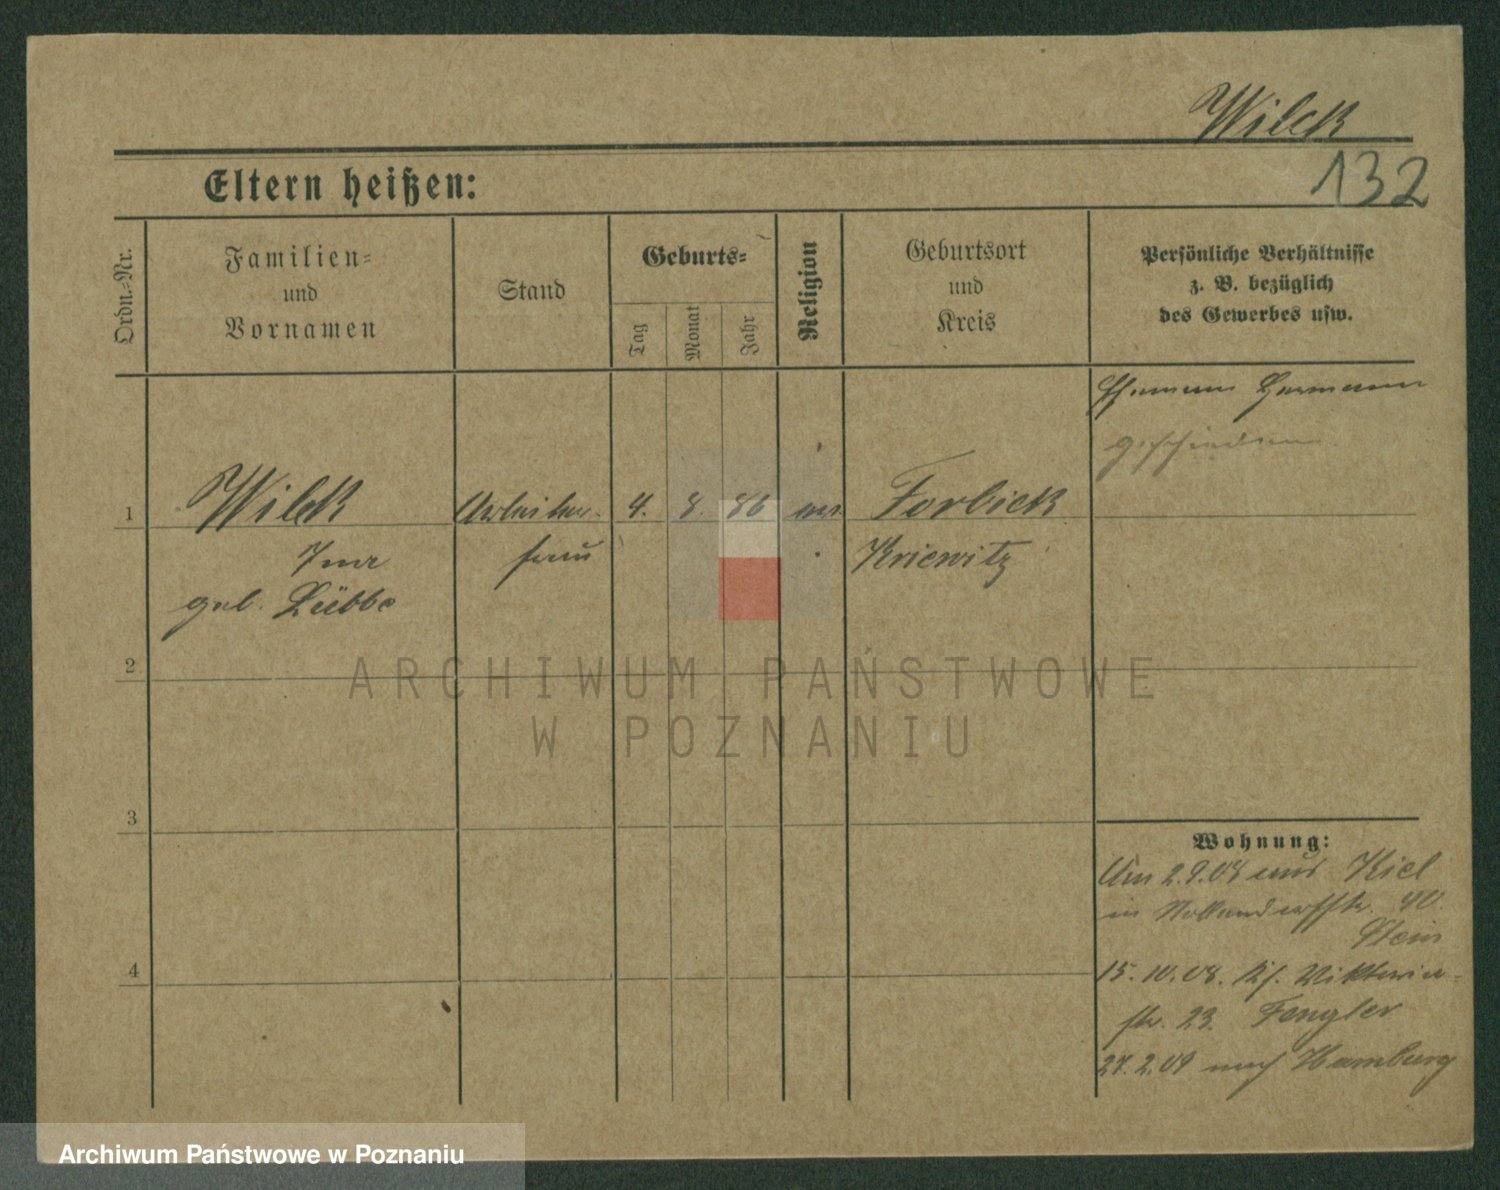 Wilck
132
Eltern heißen:
Ordn.=Nr.
Familien=
und
Vornamen
Stand
Geburts=
Tag
Monat
Jahr
Religion
Geburtsort
und
Kreis
Persönliche Verhältnisse
z. B. bezüglich
des Gewerbes usw.
Ehemann Hermann
geschieden
1
Wilck
geb. Lübbe
Arbeiter-
frau
4. 8. 86
ev
Forbick
Kriewitz
2
3
4
Wohnung:
Am 2.9.08 aus Kiel
in 40.
Stein
15.10.08. Viktoria-
str. 23. Fengler
27.2.09 nach Hamburg
ARCHIWUM PAŃSTWOWE
W POZNANIU
Archiwum Państwowe w Poznaniu